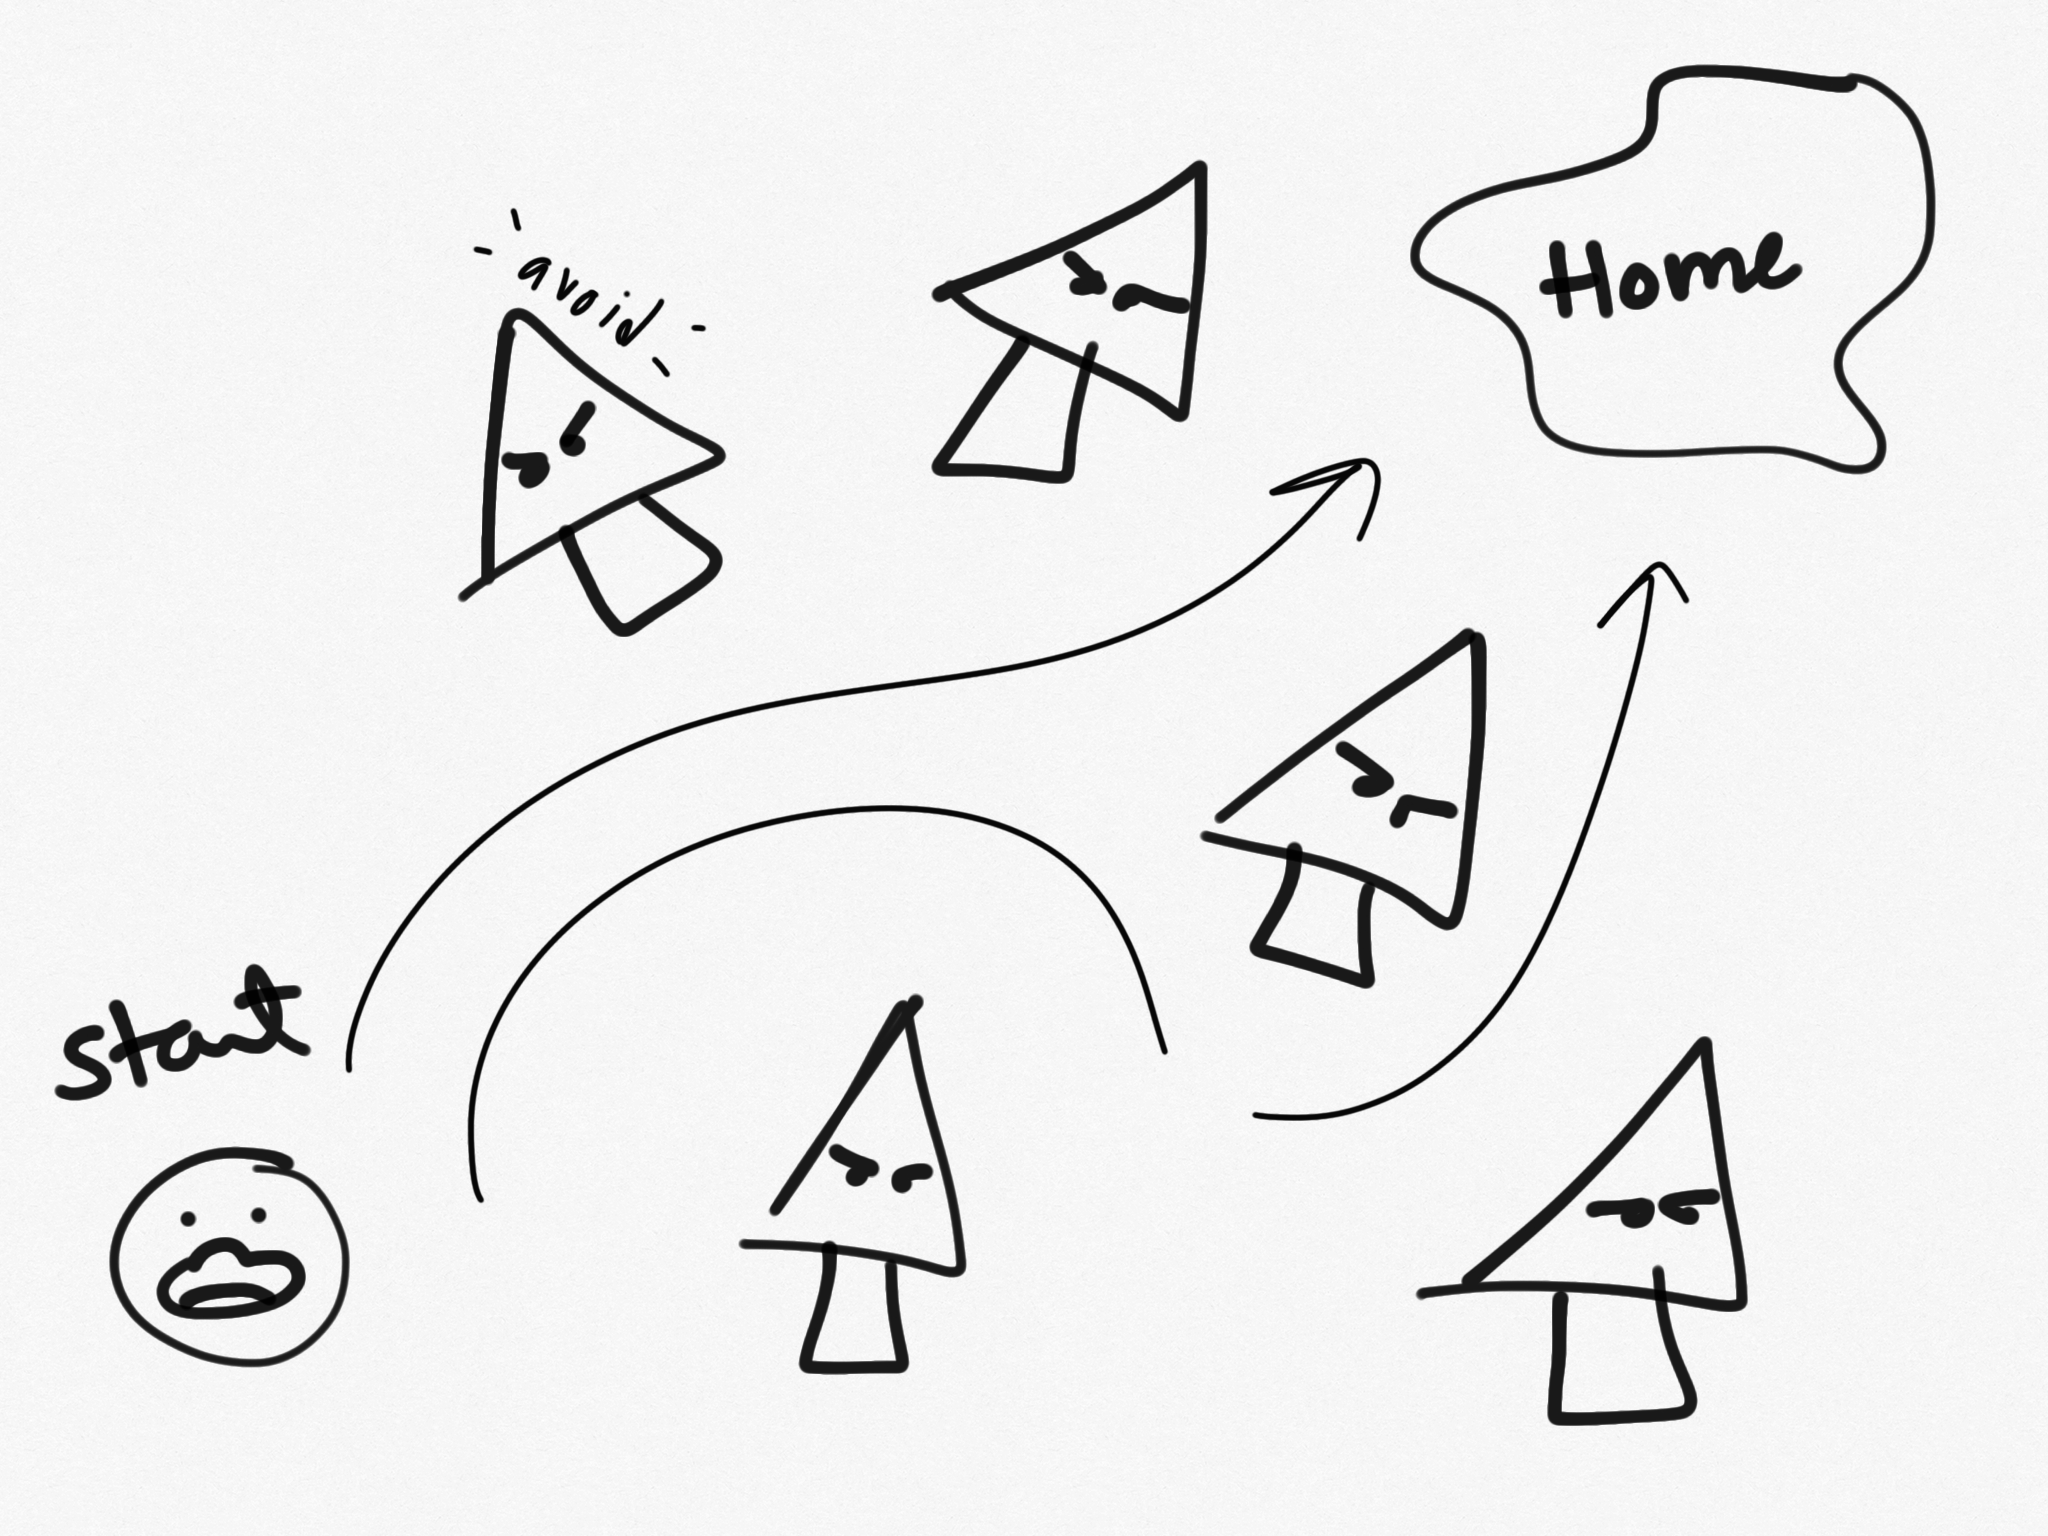 avoid
Home
start